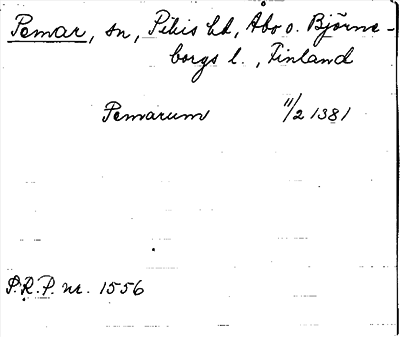 Pemar, sn, Pikis hd, Åbo o. Björne-
borgs l., Finland
Pemarum 11/2 1381
S.R.P. nr. 1556